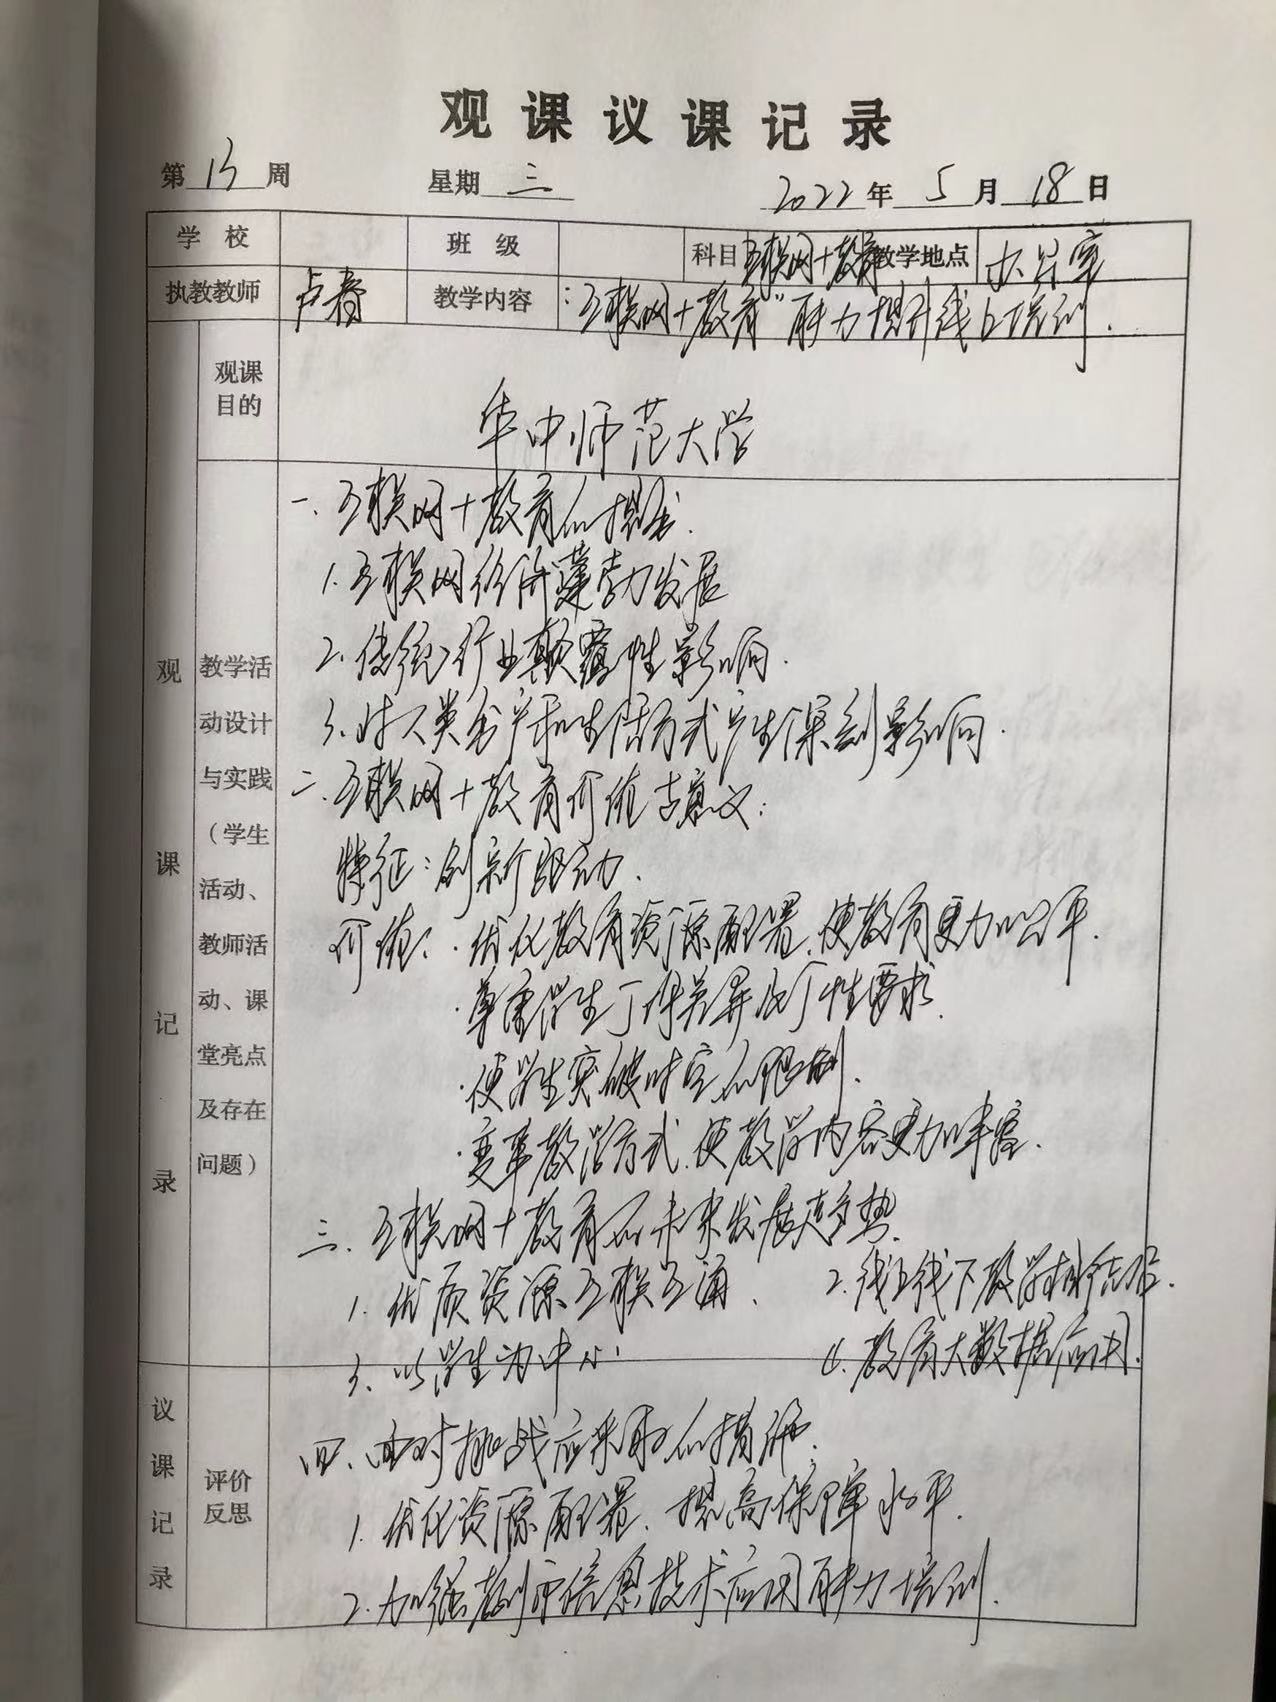 观课议课记录
第 13 周 星期 三 2022 年 5 月 18 日
学校 班级 科目 互联网+教育 教学地点 办公室
执教教师 卢春 教学内容 :互联网+教育"能力提升线上培训.
观课目的 华中师范大学
观课记录
教学活动设计与实践(学生活动、教师活动、课堂亮点及存在问题)
一.互联网+教育的
1.互联网经济蓬勃发展
2.传统行业颠覆性影响.
3.对人类生产和生活方式产生深刻影响.
二.互联网+教育价值与意义:
特征:创新驱动.
价值:·优化教育资源配置,使教育更加公平.
·尊重学生个体差异及个性要求
·使学生突破时空的限制.
·变革教学方式,使教学内容更加丰富.
三.互联网+教育的未来发展趋势.
1.优质资源互联互通. 2.线上线下教学相结合.
3.以学生为中心 4.教育大数据应用.
议课记录
评价反思
四.面对挑战应采取的措施.
1.优化资源配置.提高保障水平.
2.加强教师信息技术应用能力培训.